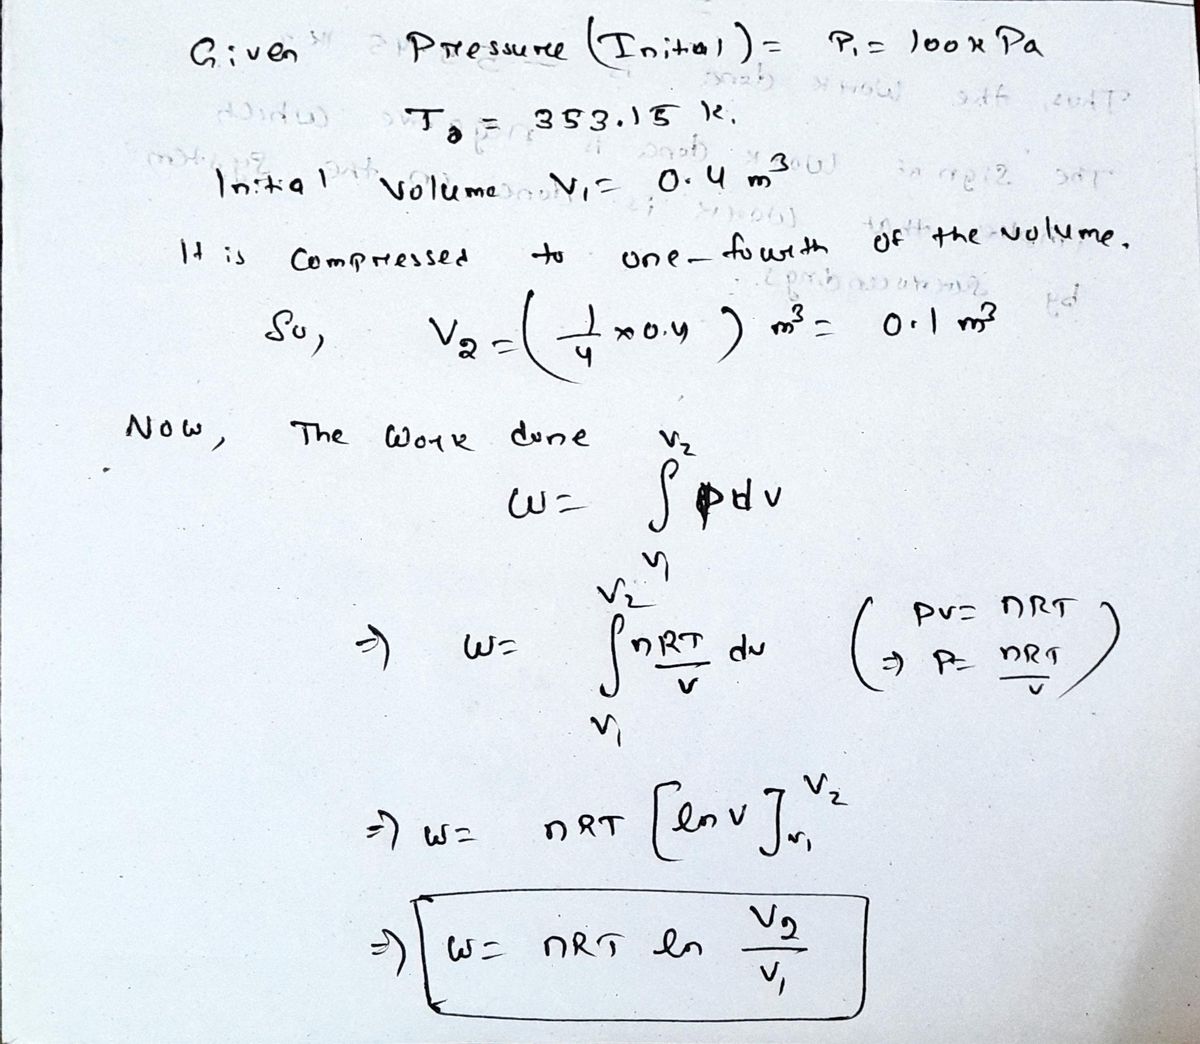 Given Pressure (Initial) = P₁ = 100 k Pa
T₀ = 353.15 k.
Initial volume V₁ = 0.4 m³
It is compressed to one-fourth of the volume.
So, V₂ = (1/4 × 0.4) m³ = 0.1 m³
Now, The work done
W = ∫_{V₁}^{V₂} p dv
⇒ W = ∫_{V₁}^{V₂} nRT/v dv (pv = nRT ⇒ P = nRT/v)
⇒ W = nRT [ln v]_{v₁}^{V₂}
⇒ W = nRT ln V₂/V₁